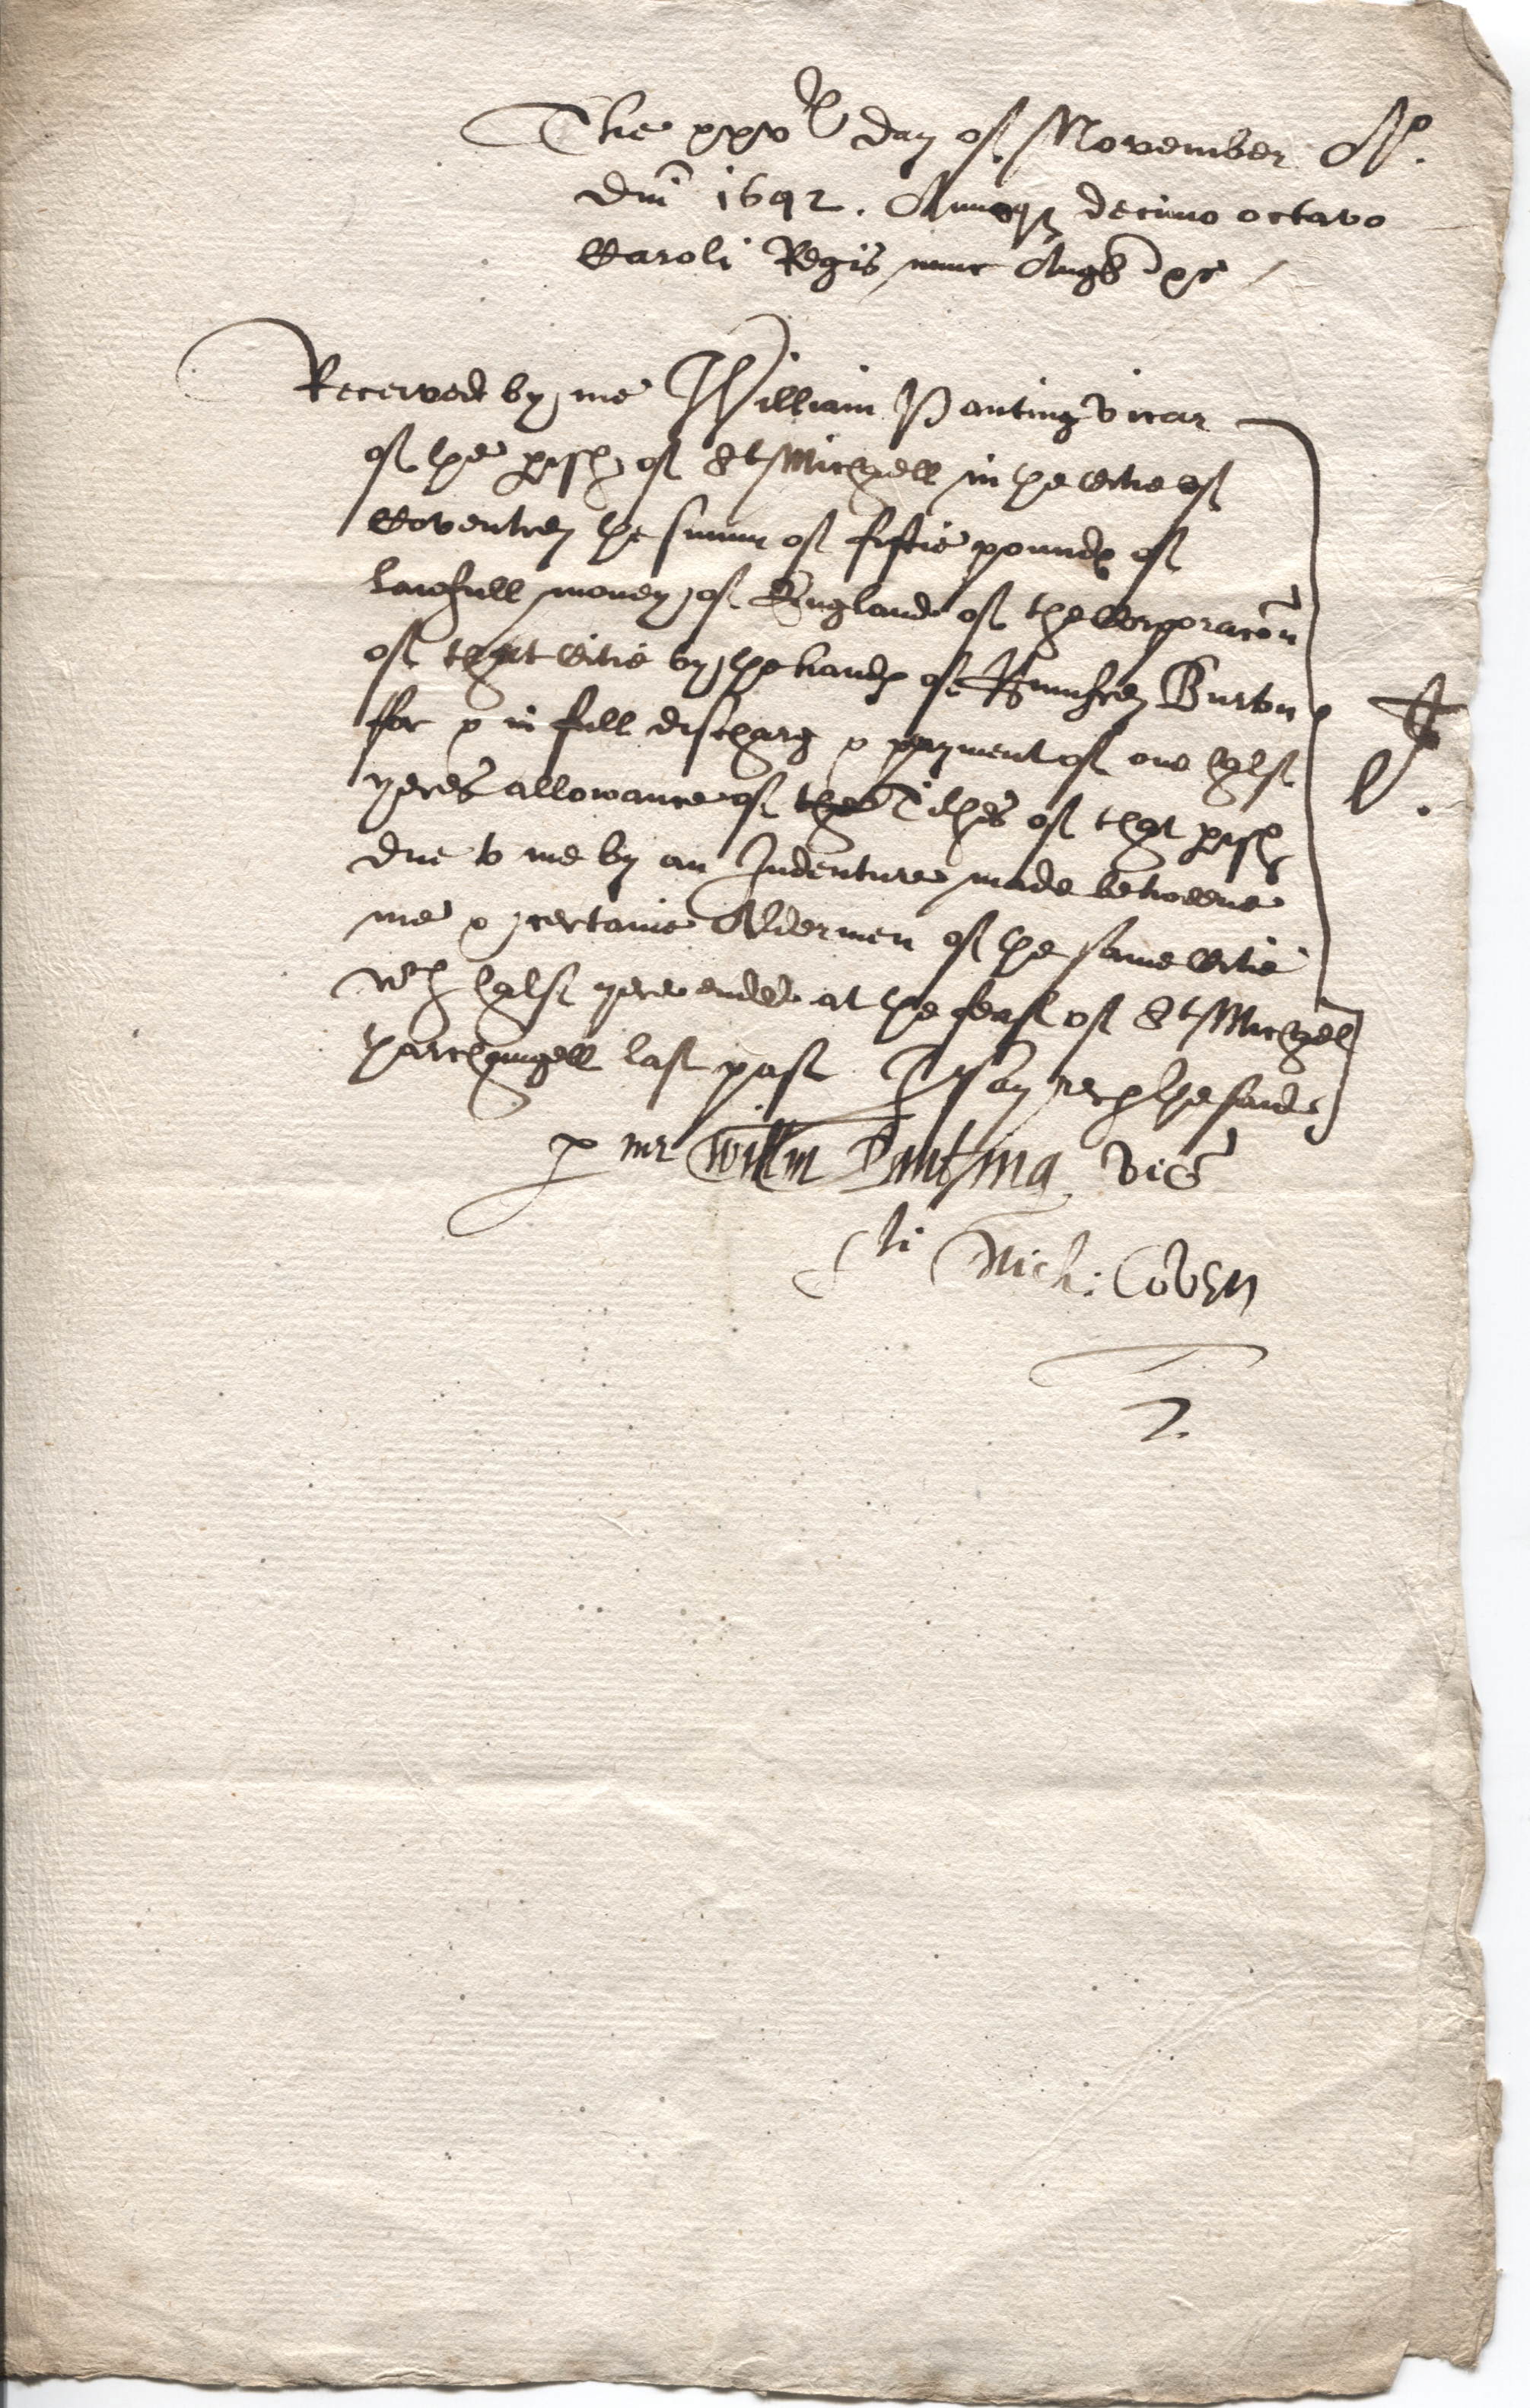 The xxvth day of November Ao.
Dni 1642. Annoqz decimo octavo
Caroli Regis nunc Angl &c
Received by me William Panting vicar
of the pish of St Michaell in the Citie of
Coventrey the summ of fiftie pounds of
lawfull money of England of the Corporacon
of that Citie by the hands of Humfrey Burton
for & in full discharg & payment of one halfe
yeres allowance of the Tithes of that pish
due to me by an Indenture made betweene
me & certaine Aldermen of the same Citie
wch halfe yere ended at the feast of St Michaell
tharchangell last past I say rec the said
li
L.
p me Willm Panting vic
Sti Mich: Coven